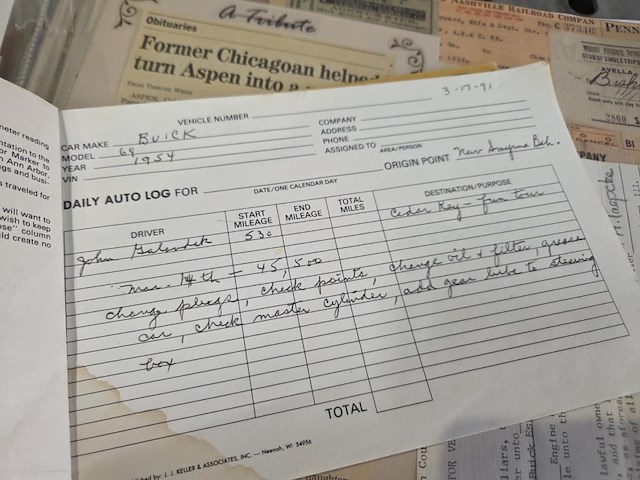 NASHVILLE RAILROAD COMPAN
No C 37346
PENN
AVELLA
A Tribute
Obituaries
Former Chicagoan helped
turn Aspen into a
meter reading
ntation to the
or Marker to
Ann Arbor.
gs and busi-
s traveled for
will want to
wish to keep
se" column
ld create no
3-17-91
VEHICLE NUMBER
CAR MAKE BUICK
MODEL 69
YEAR 1954
VIN
COMPANY
ADDRESS
PHONE
ASSIGNED TO AREA/PERSON
DAILY AUTO LOG FOR
DATE/ONE CALENDAR DAY
ORIGIN POINT New Smyrna Bch.
DRIVER
START MILEAGE
END MILEAGE
TOTAL MILES
DESTINATION/PURPOSE
John 530 Cedar Key - fun tour
Mar. 14th - 45,500
change plugs, check points, change oil & filter, grease
car, check master cylinder, add gear lube to steering
box
TOTAL
by: J. J. KELLER & ASSOCIATES, INC. — Neenah, WI 54956